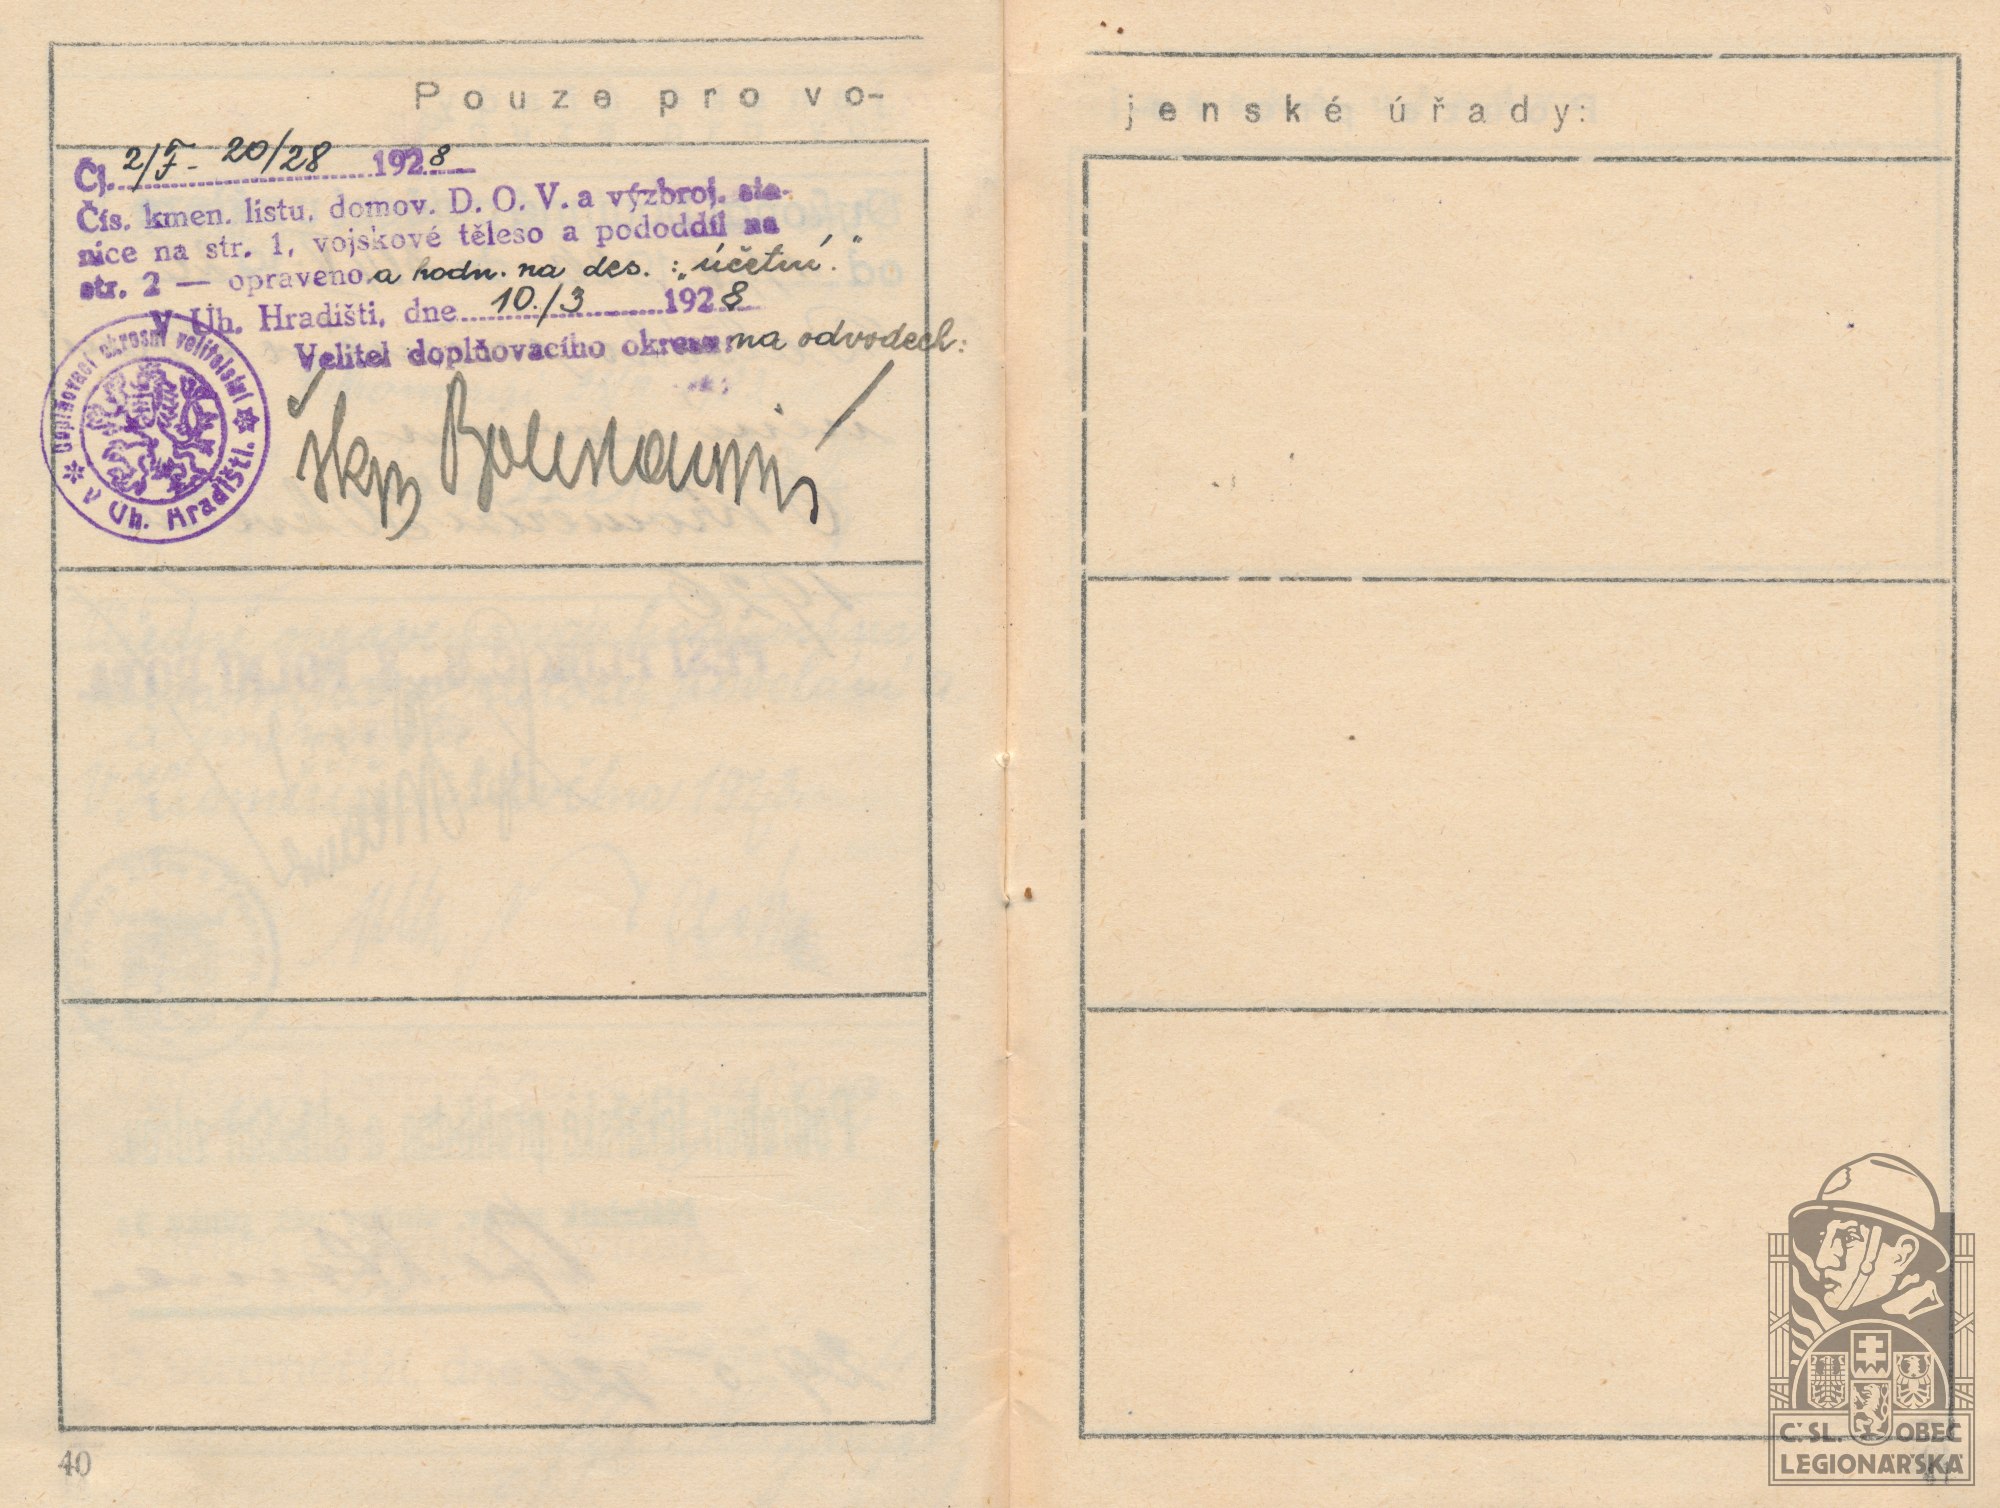 Pouze pro vo-
Čj. 2/F- 20/28 1928
Čís. kmen. listu, domov. D. O. V. a výzbroj. sta-
nice na str. 1, vojskové těleso a pododdíl na
str. 2 — opraveno a hodn. na des. : „účetní."
V Uh. Hradišti, dne 10./3 1928
Velitel doplňovacího okresu: na odvodech:
škpt
Doplňovací okresní velitelství
v Uh. Hradišti.
40
jenské úřady:
Č. SL. OBEC
LEGIONÁŘSKÁ